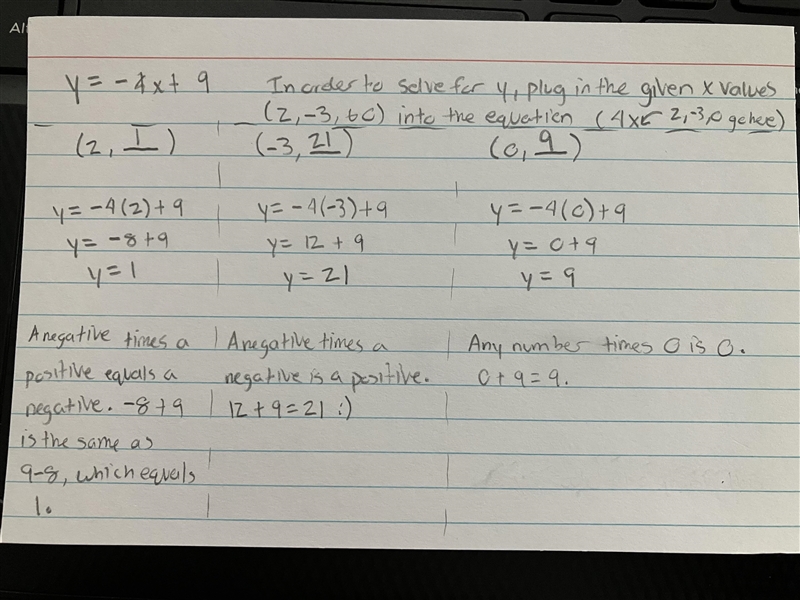 Al
y = -4x + 9 In order to solve for y, plug in the given x values
(2, -3, to 0) into the equation (4x ← 2, -3, 0 go here)
(2, 1) (-3, 21) (0, 9)
y = -4(2) + 9 y = -4(-3) + 9 y = -4(0) + 9
y = -8 + 9 y = 12 + 9 y = 0 + 9
y = 1 y = 21 y = 9
A negative times a A negative times a Any number times 0 is 0.
positive equals a negative is a positive. 0 + 9 = 9.
negative. -8 + 9 12 + 9 = 21 :)
is the same as
9-8, which equals
1.